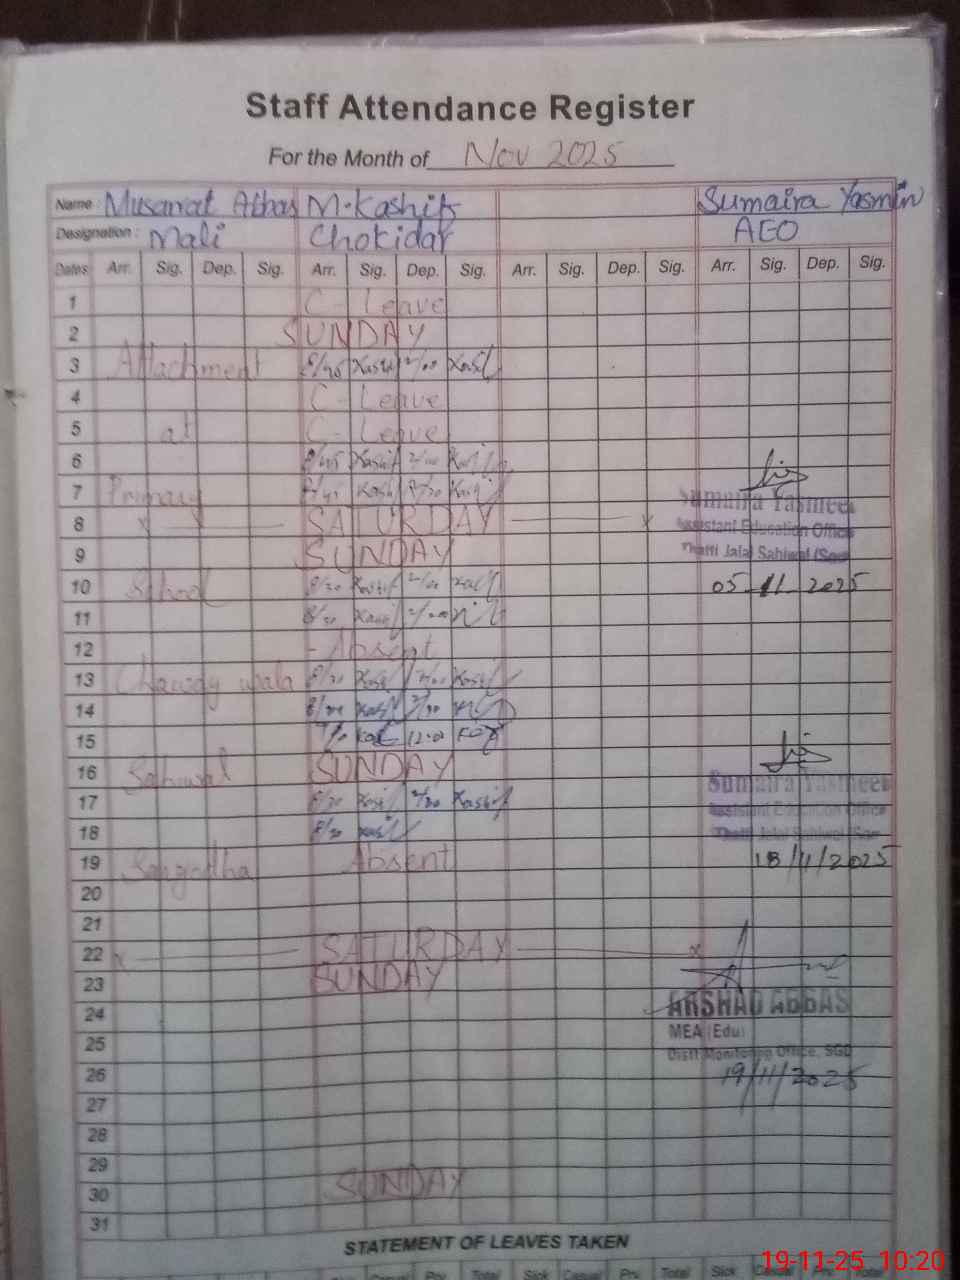 Staff Attendance Register
For the Month of Nov 2025
Name : Musarrat Abbas M. Kashif Sumaira Yasmin
Designation : Mali Chokidar AEO
Dates Arr. Sig. Dep. Sig. Arr. Sig. Dep. Sig. Arr. Sig. Dep. Sig. Arr. Sig. Dep. Sig.
1 C- Leave
2 SUNDAY
3 Attachment 8/45 2/00
4 C- Leave
5 at C- Leave
6 8/45 Kashif 2/00
7 Primary 8/45 Kashif
8 x SATURDAY x
9 SUNDAY
10 School 8/30 Kashif 2/00
11 8/30 2/00
12 - Absent
13 Chawdy wala 8/30 2/00
14
15 12:00
16 Sahiwal SUNDAY
17 8/30 Kashif 2/00 Kashif
18 8/30
19 Sargodha Absent
20
21
22 x SATURDAY x
23 SUNDAY
24
25
26
27
28
29
30 SUNDAY
31
Sumaira Yasmeen
Assistant Education Office
Thatti Jalal Sahiwal
05-11-2025
Sumaira Yasmeen
Assistant Education Office
Thatti Jalal Sahiwal
18/11/2025
ARSHAD ABBAS
MEA (Edu)
Distt Monitoring Office, SGD
19/11/2025
STATEMENT OF LEAVES TAKEN
Total Sick Total Sick Total Sick
19-11-25 10:20